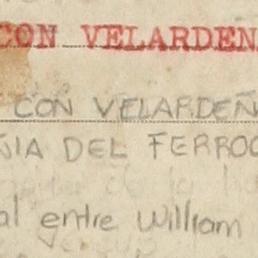 CON VELARDEÑ
CON VELARDEÑ
ÑIA DEL FERROC
al entre William